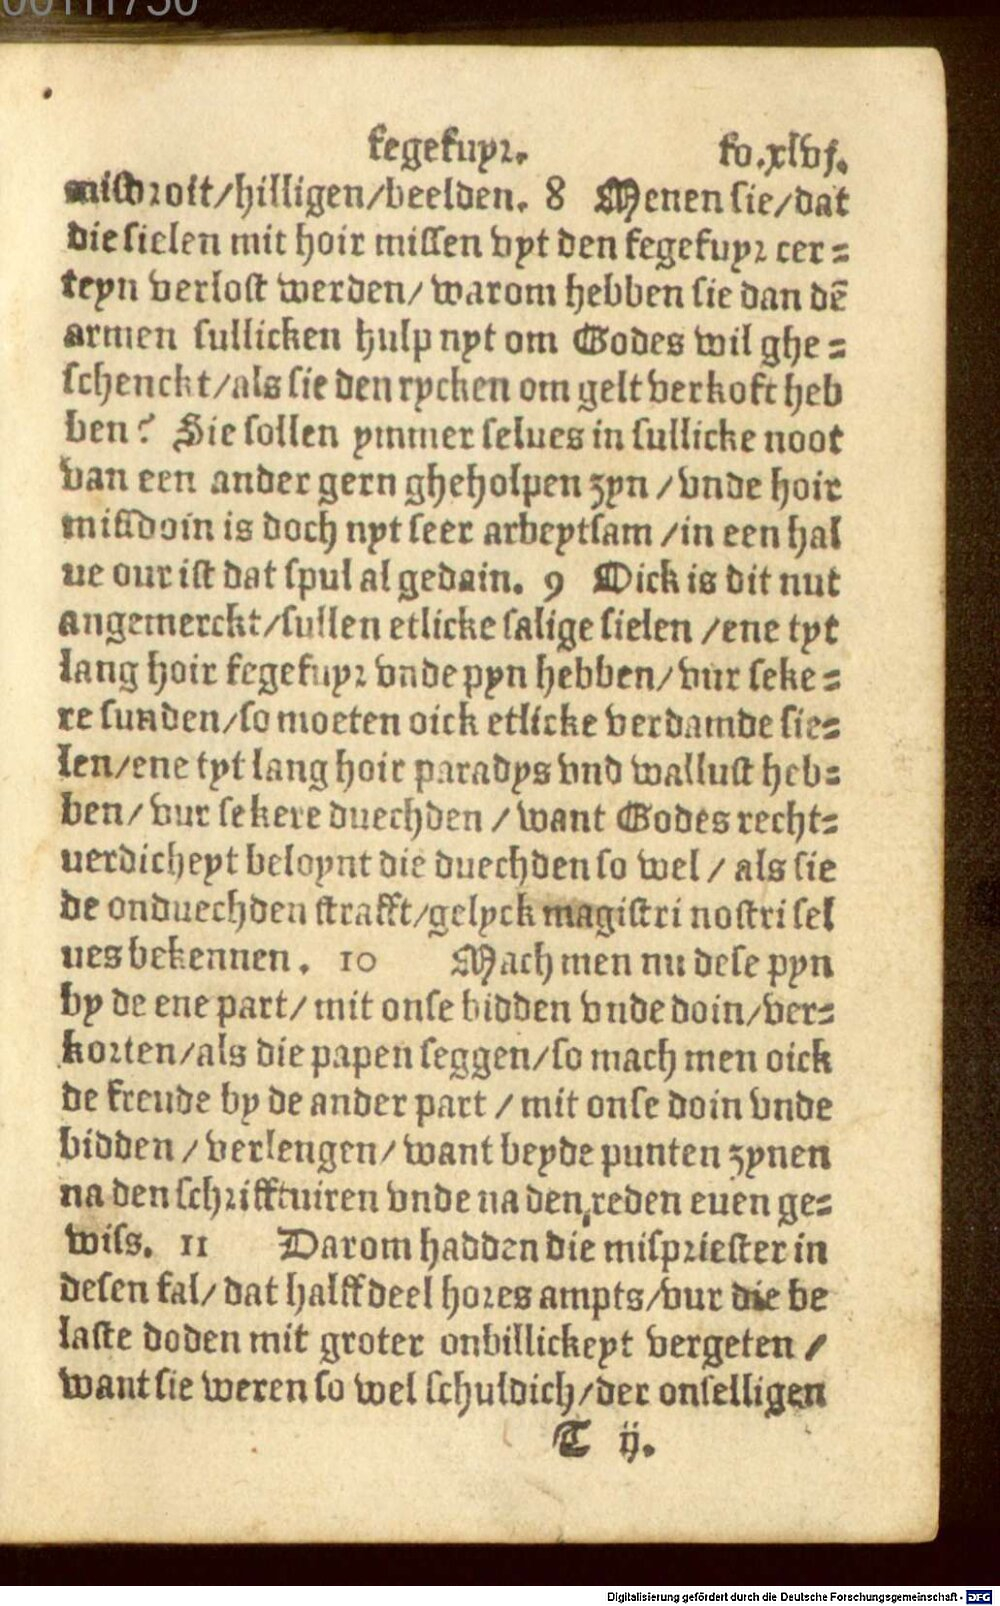 00111750
fegefuyr. fo.xlvj.
misdroit/hilligen/beelden. 8 Menen sie/dat
die sielen mit hoir missen vyt den fegefuyr cer=
teyn verlost werden/ warom hebben sie dan dē
armen sullicken hulp nyt om Godes wil ghe=
schenckt/als sie den rycken om gelt verkoft heb
ben? Sie sollen ymmer selues in sullicke noot
van een ander gern gheholpen zyn /vnde hoir
missdoin is doch nyt seer arbeytsam /in een hal
ue our ist dat spul al gedain. 9 Oick is dit nut
angemerckt/sullen etlicke salige sielen /ene tyt
lang hoir fegefuyr vnde pyn hebben/ vur seke=
re sunden/so moeten oick etlicke verdamde sie=
len/ene tyt lang hoir paradys vnd wallust heb=
ben/ vur sekere duechden /want Godes recht=
uerdicheyt beloynt die duechden so wel/ als sie
de onduechden strafft/gelyck magistri nostri sel
ues bekennen. 10 Mach men nu dese pyn
by de ene part/ mit onse bidden vnde doin/ver=
korten/als die papen seggen/so mach men oick
de freude by de ander part /mit onse doin vnde
bidden /verlengen/want beyde punten zynen
na den schrifftuiren vnde na den reden euen ge=
wiss. 11 Darom hadden die mispriester in
desen fal/ dat halff deel hores ampts/vur die be
laste doden mit groter onbillickeyt vergeten /
want sie weren so wel schuldich/der onselligen
T ij.
Digitalisierung gefördert durch die Deutsche Forschungsgemeinschaft - DFG